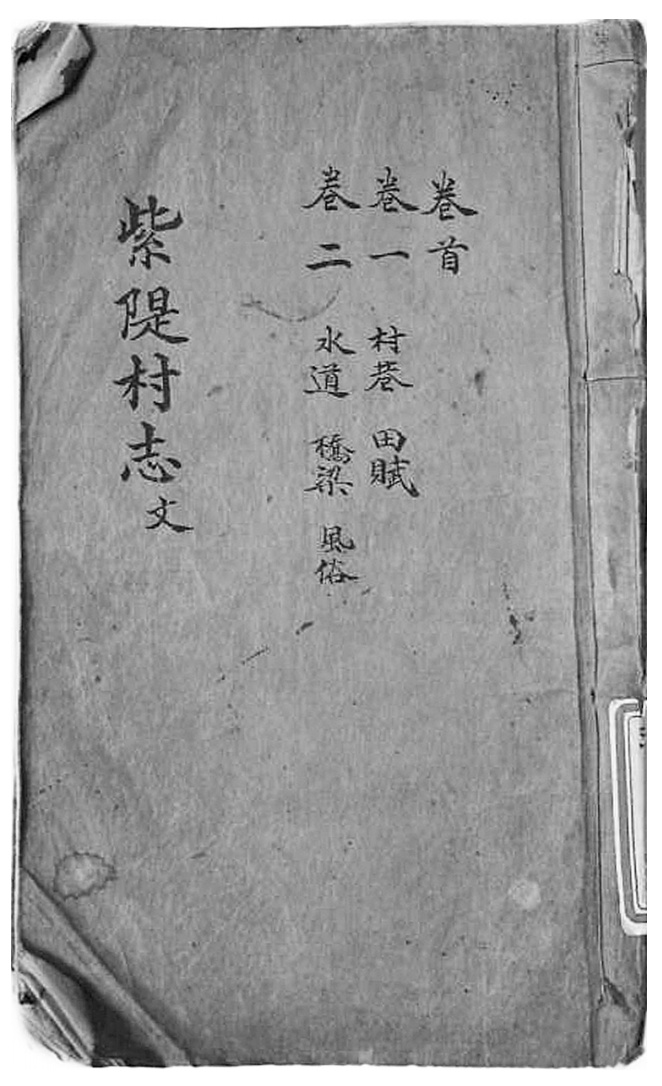 卷首
卷一 村巷 田賦
卷二 水道 橋梁 風俗
紫隄村志 文